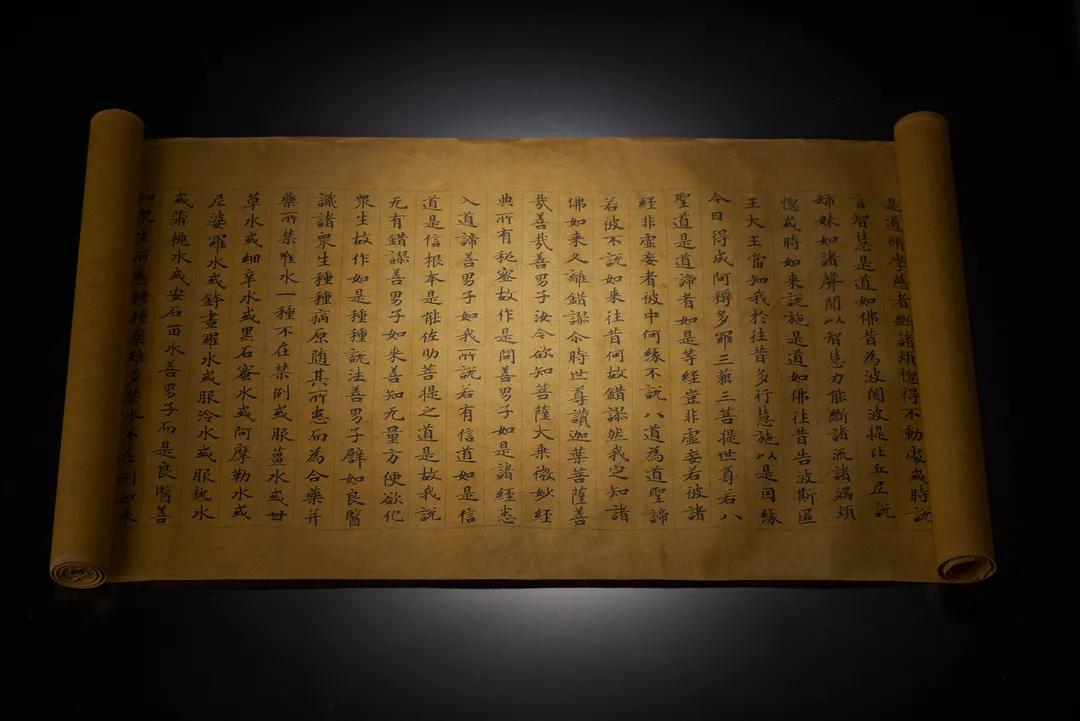 是道脩學慈者斷諸煩惱得不動處或時說
言智慧是道如佛昔為波闍波提比丘尼說
姉妹如諸聲聞以智慧力能斷諸流諸漏煩
惱或時如來說施是道如佛往昔告波斯匿
王大王當知我於往昔多行慧施以是因緣
今日得成阿耨多羅三藐三菩提世尊若八
聖道是道諦者如是等經豈非虛妄若彼諸
經非虛妄者彼中何緣不說八道為道聖諦
若彼不說如來往昔何故錯謬然我定知諸
佛如來久離錯謬尒時世尊讚迦葉菩薩善
哉善哉善男子汝今欲知菩薩大乘微妙經
典所有秘密故作是問善男子如是諸經悉
入道諦善男子如我所說若有信道如是信
道是信根本是能佐助菩提之道是故我說
无有錯謬善男子如來善知无量方便欲化
衆生故作如是種種說法善男子譬如良醫
識諸衆生種種病原随其所患而為合藥并
藥所禁唯水一種不在禁例或服薑水或甘
草水或細辛水或黑石蜜水或阿摩勒水或
尼婆羅水或鉢晝羅水或服冷水或服熱水
或蒲桃水或安石苗水善男子而是良醫善
知衆生所患種種藥雖多禁水不在例如来